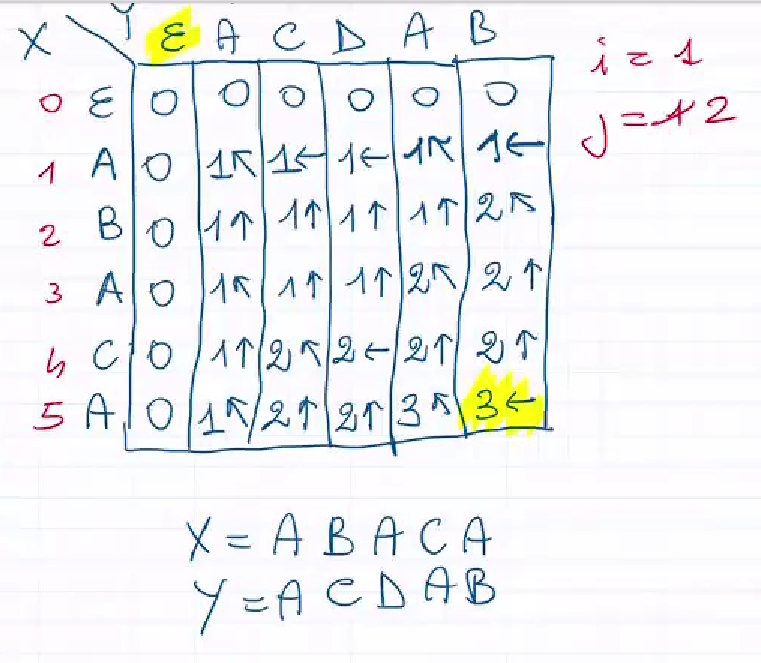 X \ Y ε A C D A B
i = 1
0 ε 0 0 0 0 0 0
j = 1 2
1 A 0 1↖ 1← 1← 1↖ 1←
2 B 0 1↑ 1↑ 1↑ 1↑ 2↖
3 A 0 1↖ 1↑ 1↑ 2↖ 2↑
4 C 0 1↑ 2↖ 2← 2↑ 2↑
5 A 0 1↖ 2↑ 2↑ 3↖ 3←
X = A B A C A
Y = A C D A B